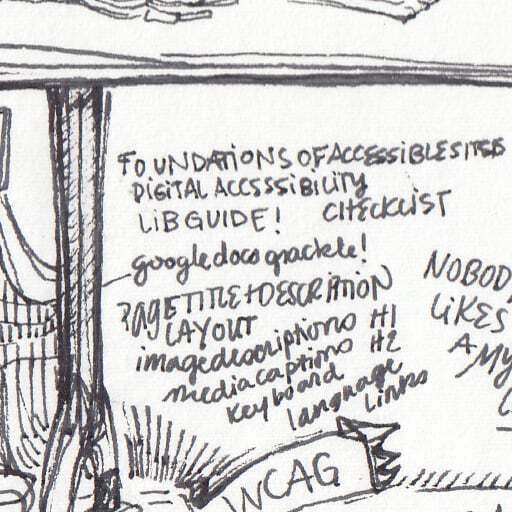 FOUNDATIONS OF ACCESSIBLE SITES
DIGITAL ACCSSSIBILITY
LIBGUIDE! CHECKLIST
google docs grackle!
PAGE TITLE + DESCRIPTION
LAYOUT
image descriptions H1
media captions H2
keyboard
language
links
NOBODY
LIKES
A MY
WCAG